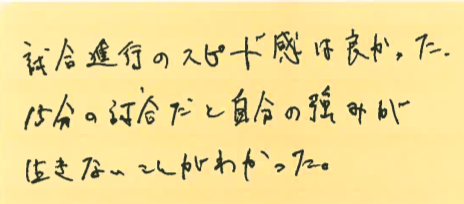 試合進行のスピード感は良かった.
15分の試合だと自分の強みが
活きないことがわかった。